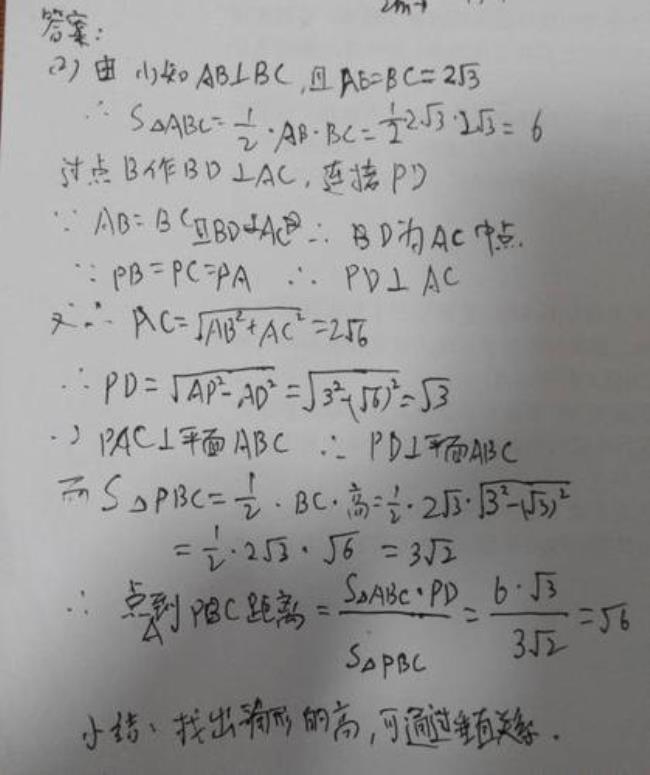 答案:
(2) 由(1)知 AB⊥BC,且AB=BC=2√3
∴ S△ABC=1/2·AB·BC=1/2·2√3·2√3=6
过点B作BD⊥AC,连接PD
∵ AB=BC且BD⊥AC ∴ BD为AC中点.
∵ PB=PC=PA ∴ PD⊥AC
又∵ AC=√(AB²+AC²)=2√6
∴ PD=√(AP²-AD²)=√(3²-(√6)²)=√3
∵ PAC⊥平面ABC ∴ PD⊥平面ABC
而S△PBC=1/2·BC·高=1/2·2√3·√(3²-(√3)²)
=1/2·2√3·√6=3√2
∴ 点A到PBC距离=(S△ABC·PD)/S△PBC=(6·√3)/(3√2)=√6
小结: 找出 形的高,可通过垂直关系.